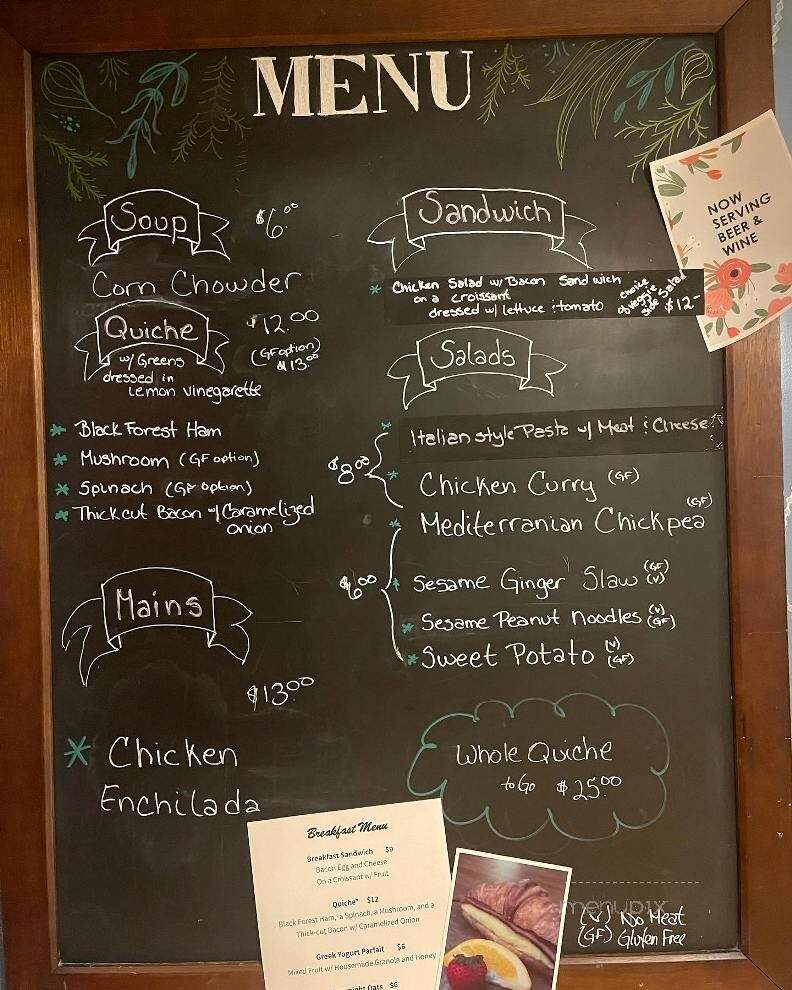 MENU
Soup
$6.00
Corn Chowder
Quiche
$12.00
(GF option)
$13.00
w/ Greens
dressed in
Lemon Vinegarette
* Black Forest Ham
* Mushroom (GF option)
* Spinach (GF option)
* Thick cut Bacon w/ Caramelized
onion
Mains
$13.00
* Chicken
Enchilada
Sandwich
* Chicken Salad w/ Bacon Sandwich
on a croissant
dressed w/ lettuce & tomato
choice
of veggie
side salad
$12-
Salads
$8.00
* Italian style Pasta w/ Meat & Cheese
* Chicken Curry (GF)
$6.00
* Mediterranean Chickpea (GF)
* Sesame Ginger Slaw (GF) (V)
* Sesame Peanut Noodles (V) (GF)
* Sweet Potato (V) (GF)
Whole Quiche
to Go $25.00
(V) No Meat
(GF) Gluten Free
NOW
SERVING
BEER &
WINE
Breakfast Menu
Breakfast Sandwich $9
Bacon Egg and Cheese
On a Croissant w/ Fruit
Quiche* $12
Black Forest Ham, a Spinach, a Mushroom, and a
Thick-cut Bacon w/ Caramelized Onion
Greek Yogurt Parfait $6
Mixed Fruit w/ Housemade Granola and Honey
Oats $6
menupix